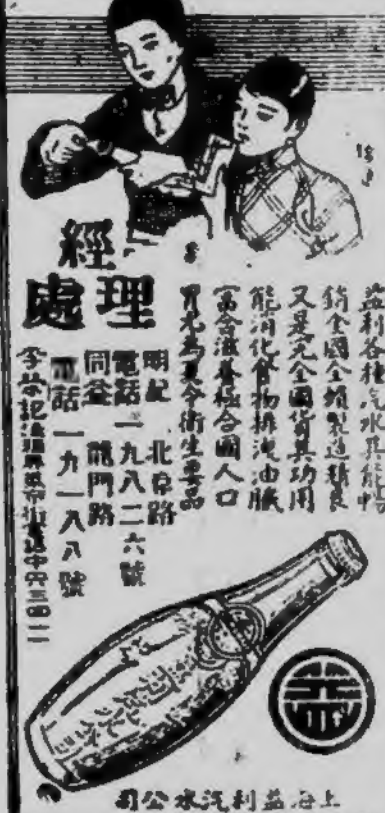 益利各種汽水其能暢
銷全國全賴製造精良
又是完全國貨其功用
能消化食物排洩油膩
富含滋養極合國人口
胃尤為夏令衛生要品
經理處
明記 北京路
電話一九八二六號
同益 龍門路
電話一九一八八號
李榮記法租界菜市街電話中央三四一一
上海益利汽水公司